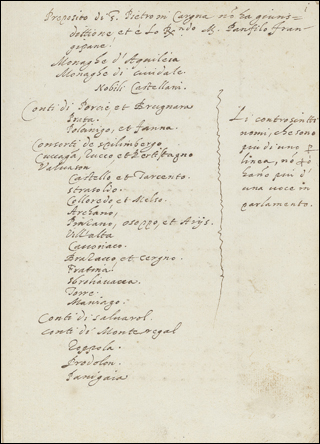 Preposito di S. Pietro in Cargna nõ ha giuris=
dittione, et è lo R.ndo M. Panfilo fran=
gipane.
Monaghe d'Aquileia
Monaghe di Cividale.
Nobili Castellani.
Conti di Porcia, et Brugnara
Pulcenigo, et fanna.
Consorti de Spilimbergo
Cucagna, Zucco et Pertistagno
Valvason
Castello et Tarcento.
Strasoldo.
Colloredo et Melso.
Arcano,
osoppo, et Ariis.
Vill'alta
Caporiaco.
Brazacco et Cergno.
Pratta.
Torre
Maniago.
Conti di Salvarol.
Conti di Monteregal
Zoppola.
Prodolon.
Panigaia
Li controscritti
nomi, che sono
piu di uno p
linea, nõ
piu d'
una voce in
parlamento.